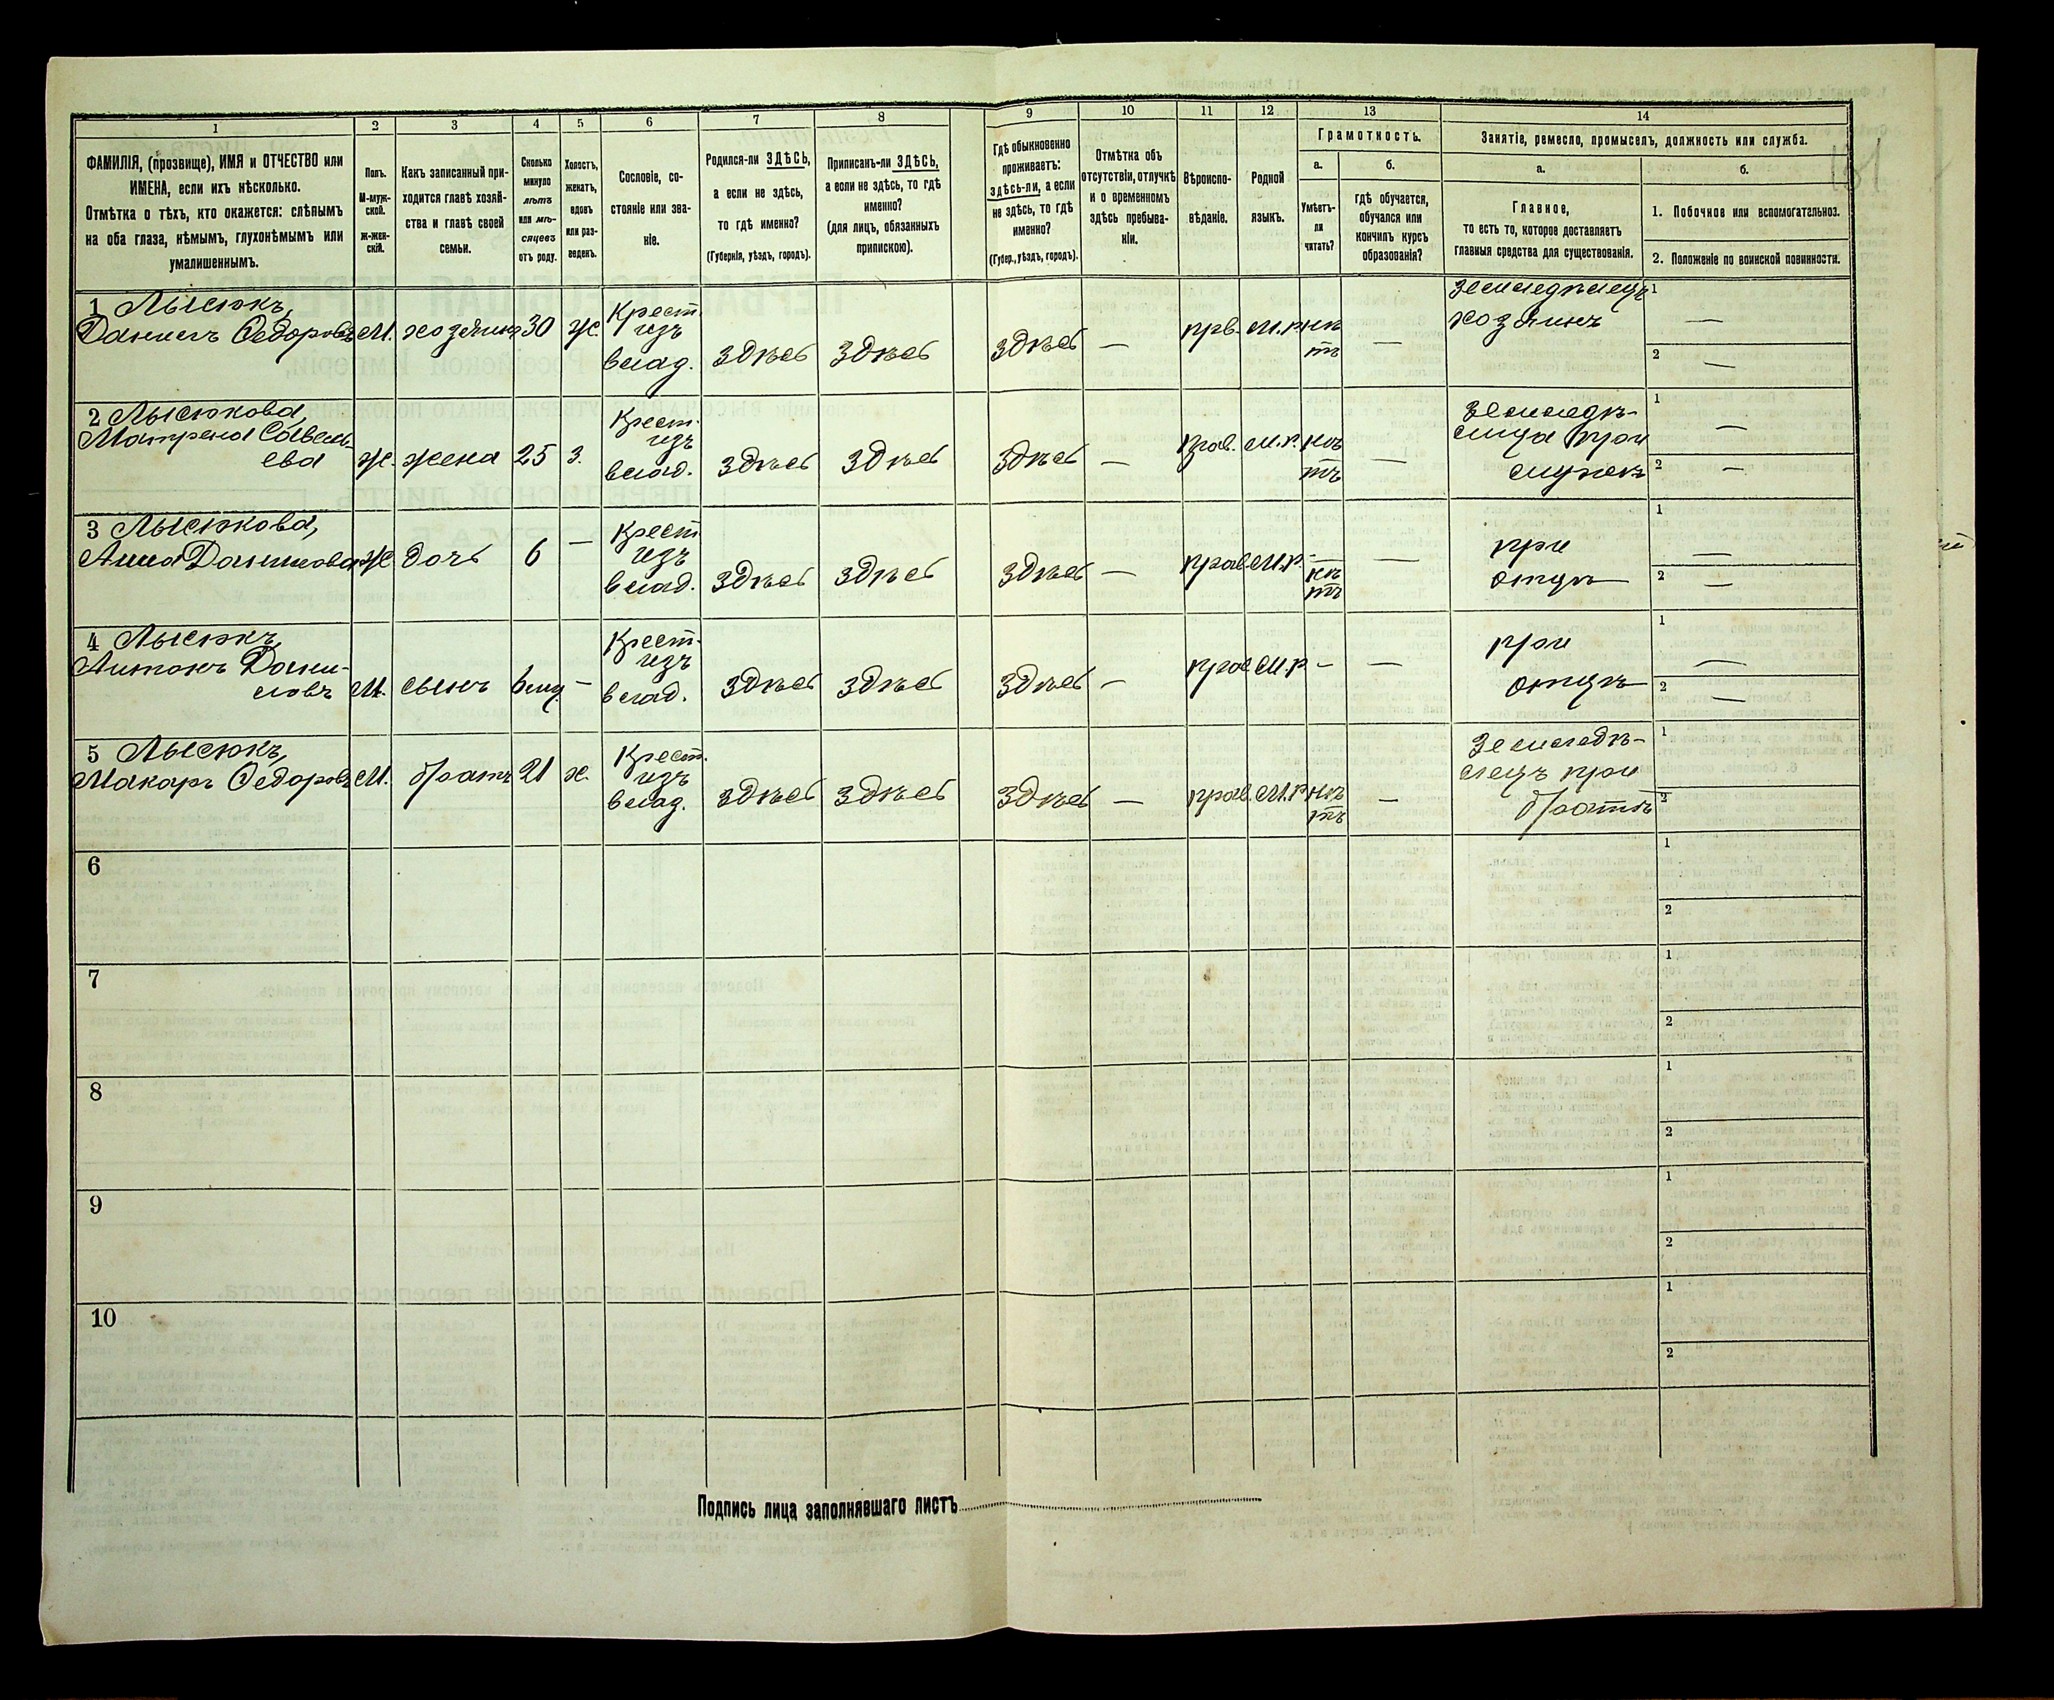 1
2
3
4
5
6
7
8
9
10
11
12
13
14
ФАМИЛІЯ, (прозвище), ИМЯ и ОТЧЕСТВО или
ИМЕНА, если ихъ нѣсколько.
Отмѣтка о тѣхъ, кто окажется: слѣпымъ
на оба глаза, нѣмымъ, глухонѣмымъ или
умалишеннымъ.
Полъ.
М-муж-
ской.
Ж-жен-
скій.
Какъ записанный при-
ходится главѣ хозяй-
ства и главѣ своей
семьи.
Сколько
минуло
лѣтъ
или мѣ-
сяцевъ
отъ роду.
Холостъ,
женатъ,
вдовъ
или раз-
веденъ.
Сословіе, со-
стояніе или зва-
ніе.
Родился-ли ЗДѢСЬ,
а если не здѣсь,
то гдѣ именно?
(Губернія, уѣздъ, городъ).
Приписанъ-ли ЗДѢСЬ,
а если не здѣсь, то гдѣ
именно?
(для лицъ, обязанныхъ
припискою).
Гдѣ обыкновенно
проживаетъ:
здѣсь-ли, а если
не здѣсь, то гдѣ
именно?
(Губер., уѣздъ, городъ).
Отмѣтка объ
отсутствіи, отлучкѣ
и о временномъ
здѣсь пребыва-
ніи.
Вѣроиспо-
вѣданіе.
Родной
языкъ.
Грамотность.
а.
Умѣетъ-
ли
читать?
б.
гдѣ обучается,
обучался или
кончилъ курсъ
образованія?
Занятіе, ремесло, промыселъ, должность или служба.
а.
Главное,
то есть то, которое доставляетъ
главныя средства для существованія.
б.
1. Побочное или вспомогательное.
2. Положеніе по воинской повинности.
1 Лысюкъ,
Данилъ Ѳедоровъ
М.
хозяинъ
30
ж.
Крест.
изъ
влад.
здѣсь
здѣсь
здѣсь
—
прв.
М.р.
нѣ
тъ
—
земледѣлецъ
хозяинъ
1 —
2 —
2 Лысюкова,
Матрена Савель-
ева
Ж.
жена
25
з.
Крест.
изъ
влад.
здѣсь
здѣсь
здѣсь
—
прав.
М.р.
нѣ
тъ
—
земледѣ-
лица при
мужѣ
1 —
2 —
3 Лысюкова,
Анна Данилова
Ж
дочь
6
—
Крест
изъ
влад.
здѣсь
здѣсь
здѣсь
—
прав
М.р.
—
нѣ
тъ
—
при
отцѣ
1 —
2 —
4 Лысюкъ,
Антонъ Дани-
ловъ
М.
сынъ
6 мц.
—
Крест.
изъ
влад.
здѣсь
здѣсь
здѣсь
—
прав
М.р.
—
—
при
отцѣ
1 —
2 —
5 Лысюкъ,
Макаръ Ѳедоровъ
М.
братъ
21
х.
Крест.
изъ
влад.
здѣсь
здѣсь
здѣсь
—
прав.
М.р.
нѣ
тъ
—
земледѣ-
лецъ при
братѣ
1
2
6
1
2
7
1
2
8
1
2
9
1
2
10
1
2
Подпись лица заполнявшаго листъ